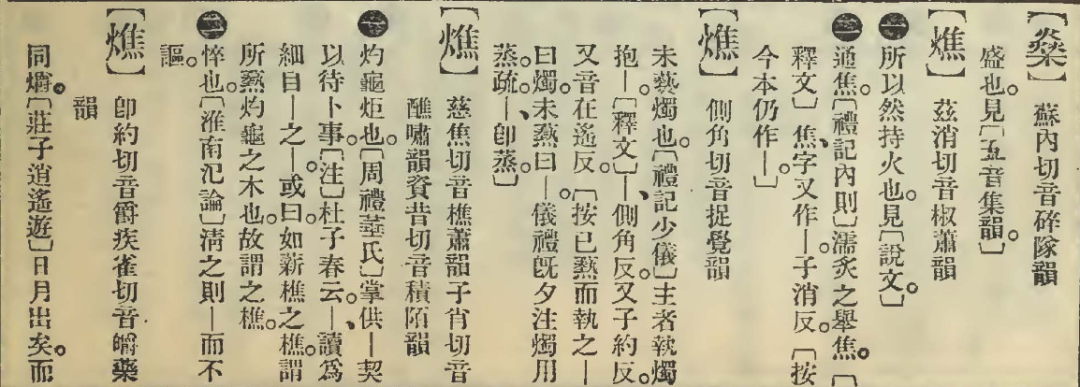 【㸂】　蘇內切音碎隊韻
盛也。見〔五音集韻。〕
【燋】　茲消切音椒蕭韻
㊀所以然持火也。見〔說文。〕
㊁通焦。〔禮記內則〕濡炙之舉焦。〔
釋文〕焦、字又作―。子消反。〔按
今本仍作―。〕
【燋】　側角切音捉覺韻
未爇燭也。〔禮記少儀〕主者執燭
抱―。〔釋文〕―、側角反。又子約反。
又音在遙反。〔按已爇而執之―
曰燭。未爇曰―。儀禮旣夕注燭用
蒸。疏、―、卽蒸。〕
【燋】　慈焦切音樵蕭韻子肖切音
醮嘯韻資昔切音積陌韻
㊀灼龜炬也。〔周禮菙氏〕掌供―契
以待卜事。〔注〕杜子春云。―、讀爲
細目―之―。或曰。如薪樵之樵。謂
所爇灼龜之木也。故謂之樵。
㊁悴也。〔淮南氾論〕淸之則―而不
謳。
【燋】　卽約切音爵疾雀切音嚼藥
韻
同爝。〔莊子逍遙遊〕日月出矣。而